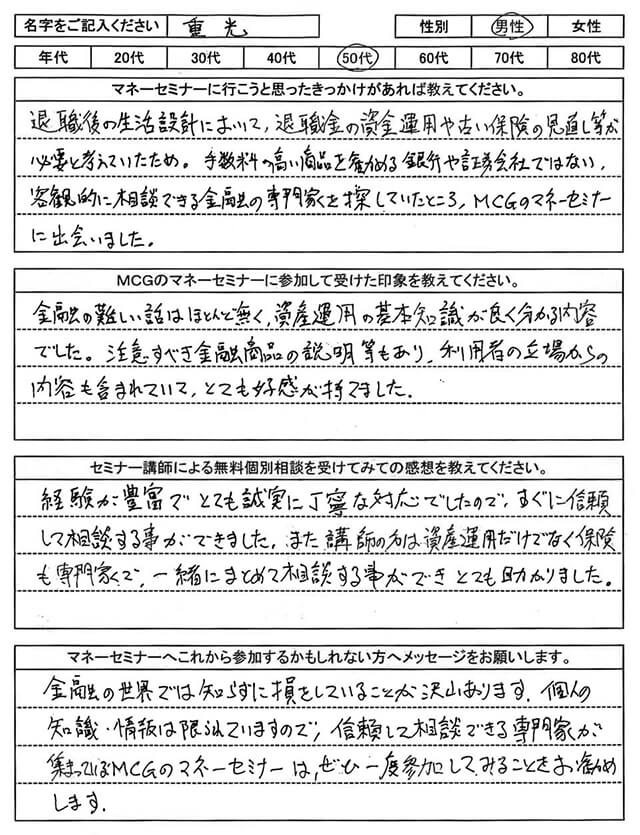 名字をご記入ください 重光 性別 男性 女性
年代 20代 30代 40代 50代 60代 70代 80代
マネーセミナーに行こうと思ったきっかけがあれば教えてください。
退職後の生活設計において、退職金の資金運用や古い保険の見直し等が
必要と考えていたため。手数料の高い商品を勧める銀行や証券会社ではない、
客観的に相談できる金融の専門家を探していたところ、MCGのマネーセミナー
に出会いました。
MCGのマネーセミナーに参加して受けた印象を教えてください。
金融の難しい話はほとんど無く、資産運用の基本知識が良く分かる内容
でした。注意すべき金融商品の説明等もあり、利用者の立場からの
内容も含まれていて、とても好感が持てました。
セミナー講師による無料個別相談を受けてみての感想を教えてください。
経験が豊富でとても誠実に丁寧な対応でしたので、すぐに信頼
して相談する事ができました。また講師の方は資産運用だけでなく保険
も専門家で、一緒にまとめて相談する事ができとても助かりました。
マネーセミナーへこれから参加するかもしれない方へメッセージをお願いします。
金融の世界では知らずに損をしていることが沢山あります。個人の
知識・情報は限られていますので、信頼して相談できる専門家が
集まっているMCGのマネーセミナーは、ぜひ一度参加してみることをお勧め
します。